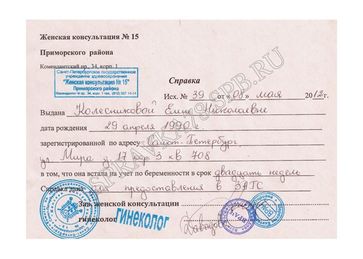 Женская консультация № 15
Приморского района
Комендантский пр., 34, корп. 1
Санкт-Петербургское государственное
учреждение здравоохранения
"Женская консультация № 15"
Приморского района
Справка
Исх. № 39 от «08» мая 2012г.
Выдана Колесниковой Елене Николаевне
дата рождения 29 апреля 1990 г
зарегистрированной по адресу Санкт-Петербург
ул Мира д 17 кор 3 кв 708
в том, что она встала на учет по беременности в срок двадцать недель
Справка дана для предоставления в ЗАГС
Зав. женской консультации
гинеколог гинеколог
SPRAVKI78SPB.RU